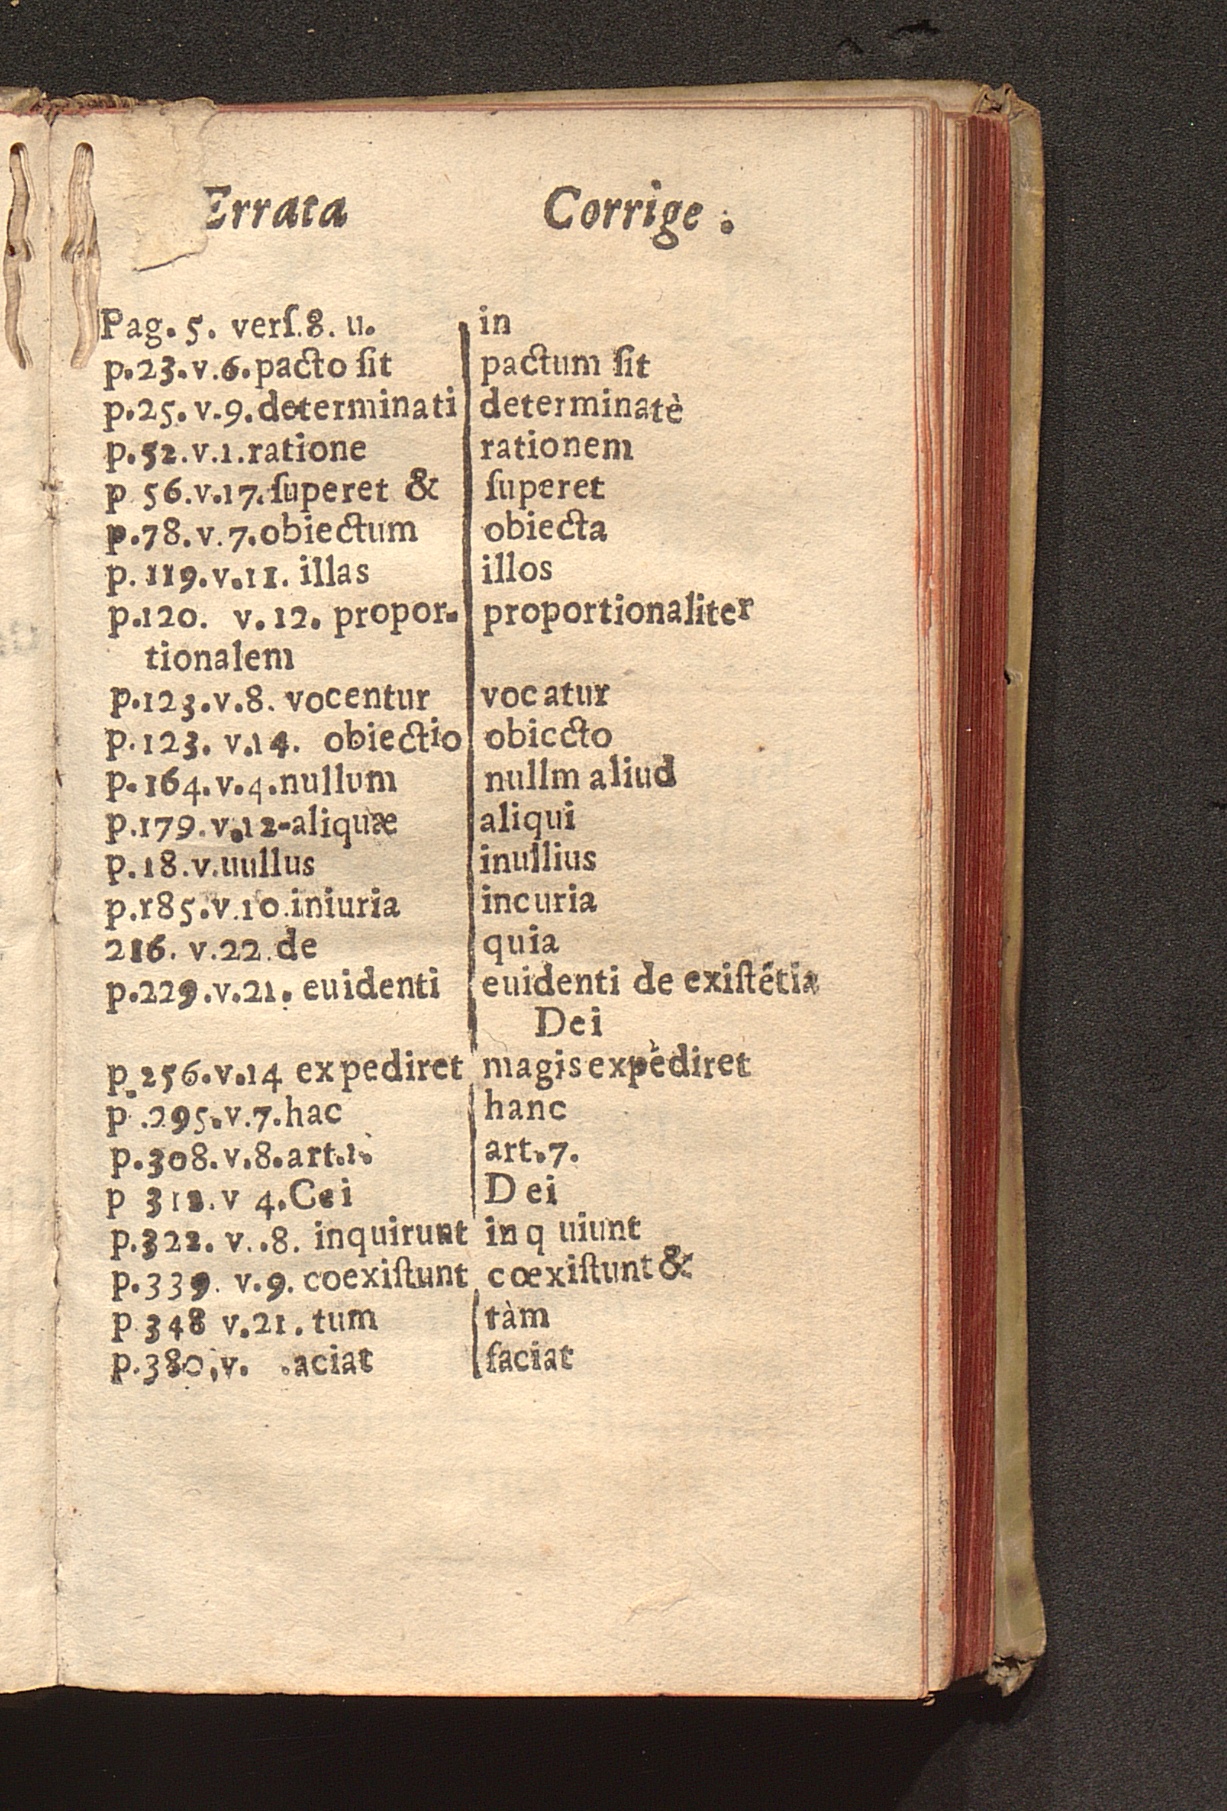 Errata Corrige .
Pag. 5. verſ. 8. u. in
p.23.v.6.pacto ſit pactum ſit
p.25. v.9.determinati determinatè
p.52.v.1.ratione rationem
p 56.v.17.ſuperet & ſuperet
p.78.v.7.obiectum obiecta
p. 119.v.11. illas illos
p.120. v.12. propor- proportionaliter
tionalem
p.123.v.8. vocentur vocatur
p.123. v.14. obiectio obiccto
p.164.v.4.nullum nullm aliud
p.179.v.12-aliquæ aliqui
p.18.v.uullus inullius
p.185.v.10.iniuria incuria
216. v.22.de quia
p.229.v.21. euidenti euidenti de exiſtétia
Dei
p.256.v.14 expediret magis expèdiret
p .295.v.7.hac hanc
p.308.v.8.art.1. art.7.
p 312.v 4.Cei Dei
p.322. v..8. inquirunt inq uiunt
p.339. v.9. coexiſtunt cœxiſtunt &
p 348 v.21. tum tàm
p.380,v. .aciat faciat